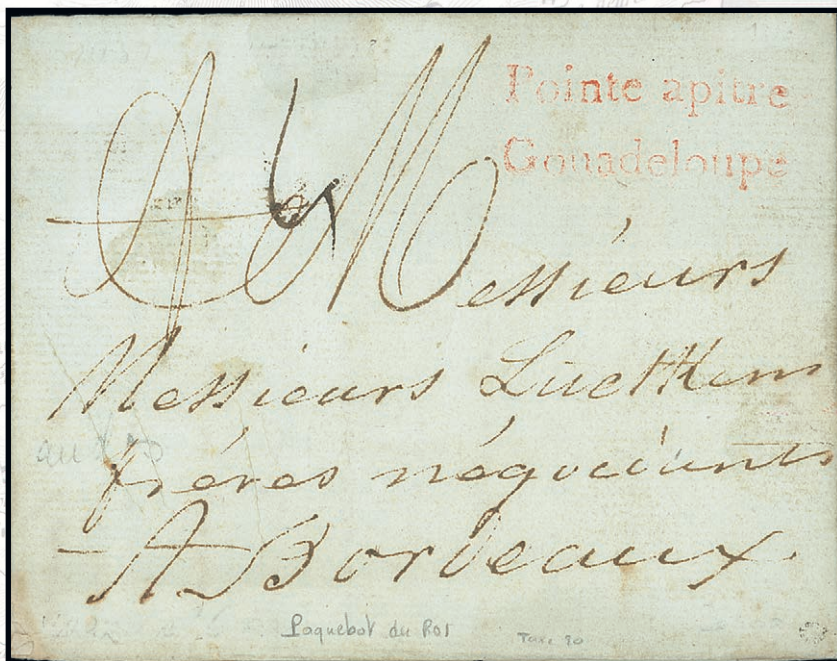 Pointe apitre
Gouadeloupe
A Messieurs
Messieurs Luetkens
frères négociants
A Bordeaux
au dos
Paquebot du Roi
Taxe 20